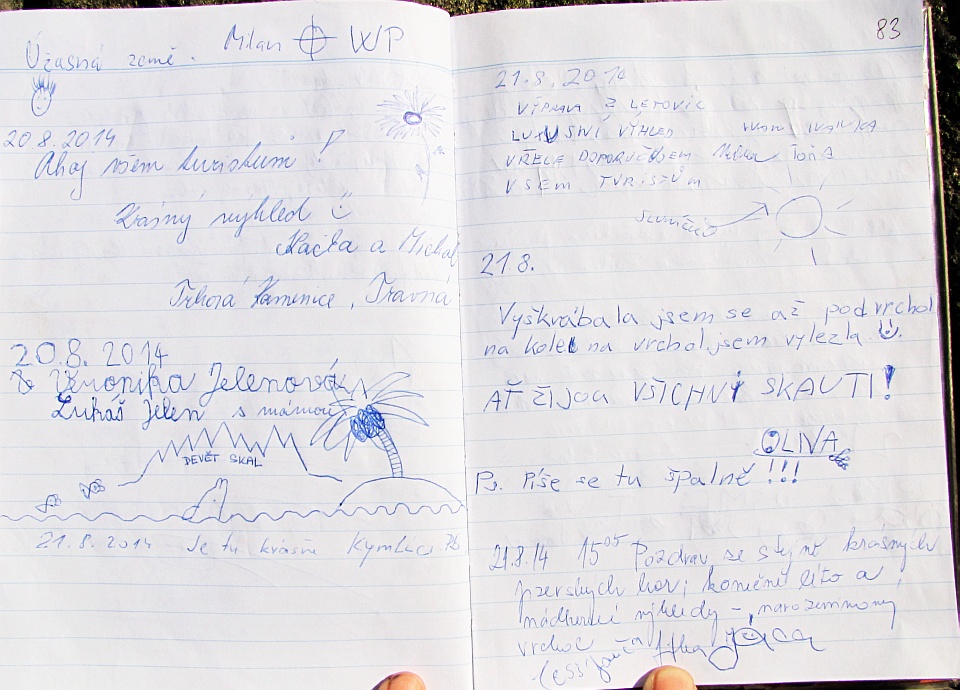 Milan WP
Úžasná země.
20 8. 2014
Ahoj všem turistum!
Krásný výhled
Kačka a Michal
Trhová Kamenice, Travná
20.8. 2014
Veronika Jelenová
Lukáš Jelen s mámou
DEVĚT SKAL
21.8.2014 Je tu krásně
83
21.8.2014
VÝPRAVA Z LETOVIC
LUXUSNÍ VÝHLED
VŘELE DOPORUČUJEM
VŠEM TURISTŮM
Sluníčko
21.8.
Vyškrábala jsem se až pod vrchol
na kole na vrchol jsem vylezla.
AŤ ŽIJOU VŠICHNI SKAUTI!
OLIVA
Ps. Píše se tu špatně !!!
21.8.14 15⁰⁵ Pozdrav ze stejně krásných
jizerských hor; konečně léto a
nádherné výhledy –
vrchol